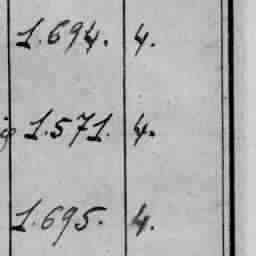 1.694. 4.
1.571. 4.
1.695. 4.